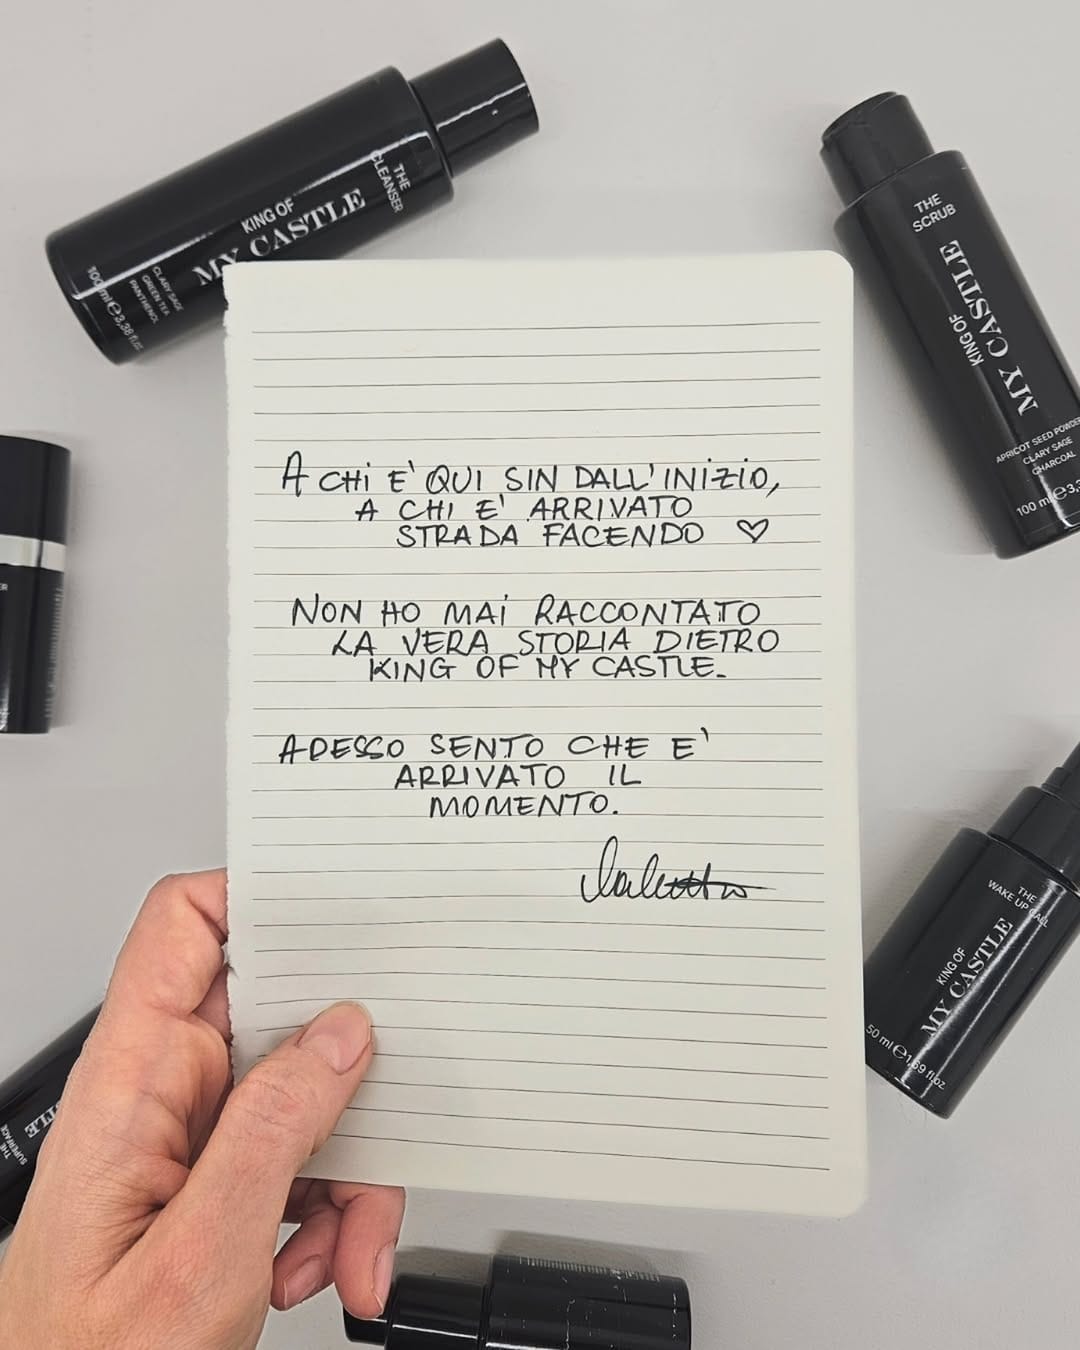 THE
CLEANSER
KING OF
MY CASTLE
CLARY SAGE
GREEN TEA
PANTHENOL
100 ml e 3,38 fl.oz
THE
SCRUB
KING OF
MY CASTLE
APRICOT SEED POWDER
CLARY SAGE
CHARCOAL
100 ml e 3,3
A CHI E' QUI SIN DALL'INIZIO,
A CHI E' ARRIVATO
STRADA FACENDO ♡
NON HO MAI RACCONTATO
LA VERA STORIA DIETRO
KING OF MY CASTLE.
ADESSO SENTO CHE E'
ARRIVATO IL
MOMENTO.
THE
WAKE UP CALL
KING OF
MY CASTLE
50 ml e 1,69 fl.oz
THE
SUPERFACE
STLE